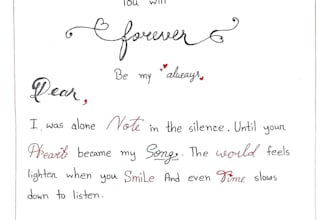 You will
forever
Be my always
Dear,
I was alone Note in the silence. Until your
Heart became my Song. The world feels
lighter when you Smile And even Time slows
down to listen.